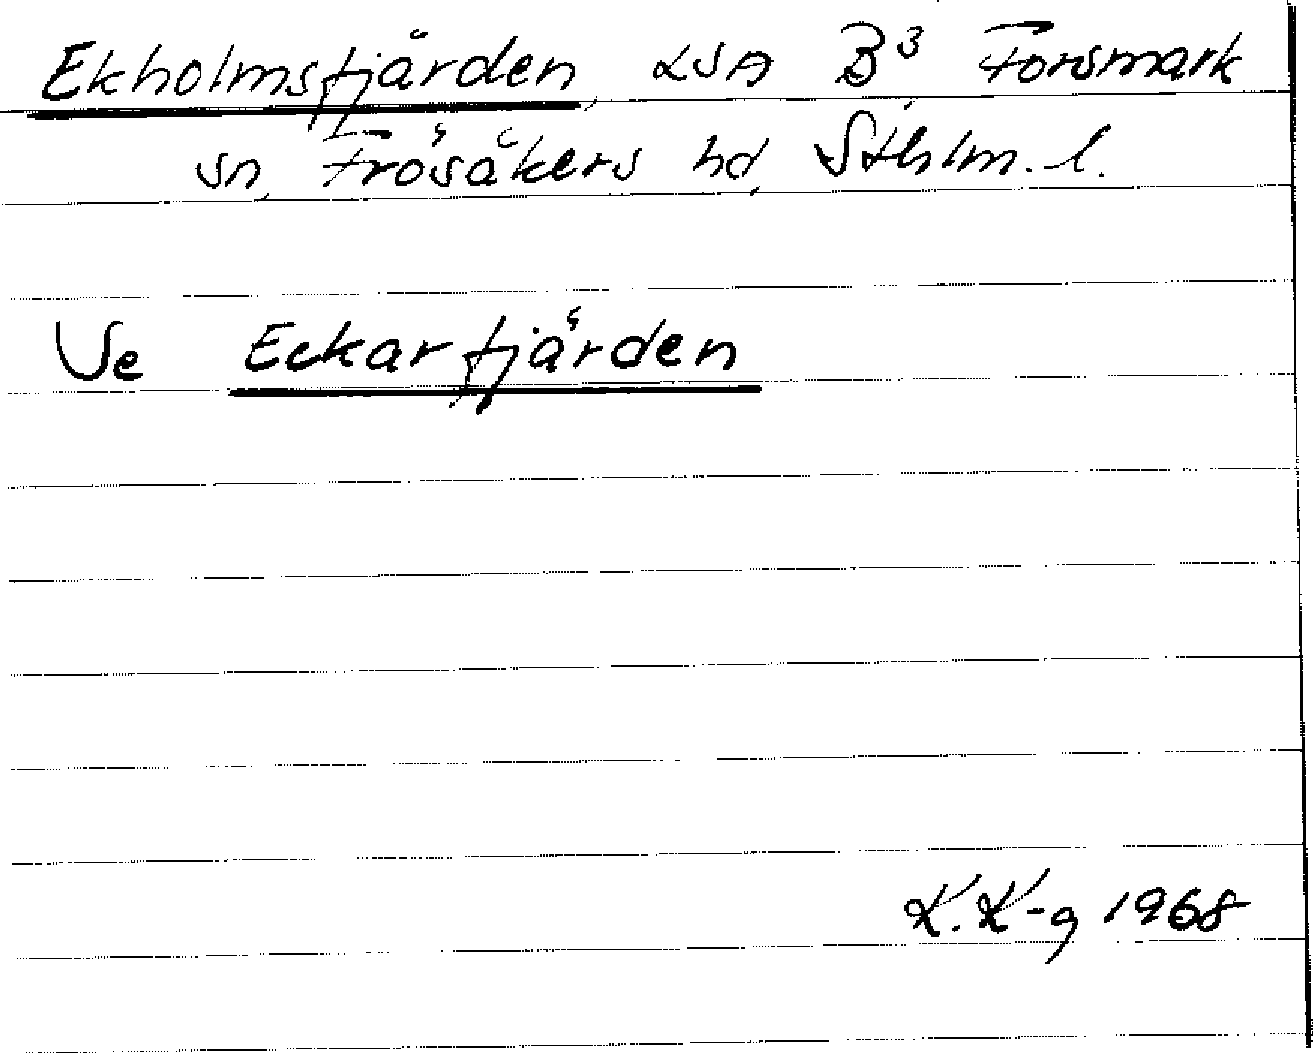 Ekholmsfjärden, LSA B³, Forsmark
sn, Frösåkers hd, Sthlm. l.
Se Eckarfjärden
K.K-g 1968